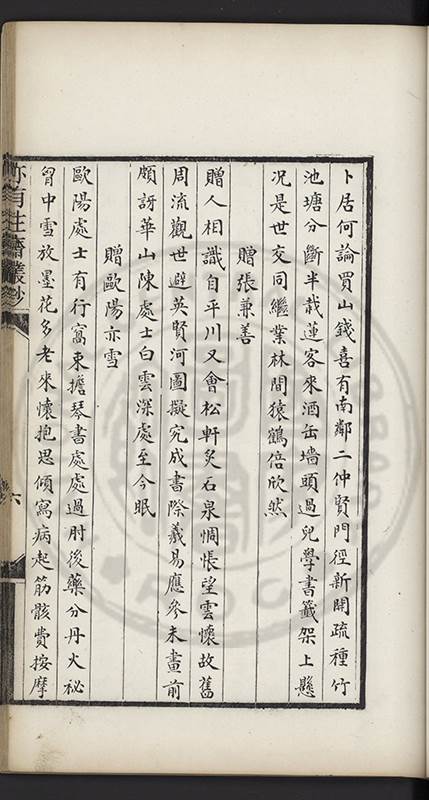 卜居何論買山錢喜有南鄰二仲賢門徑新開疏種竹
池塘分斷半栽蓮客來酒缶墻頭過兒學書籤架上懸
况是世交同繼業林間猿鶴倍欣然
贈張兼善
贈人相識自平川又會松軒炙石泉惆悵望雲懷故舊
周流觀世避英賢河圖擬究成書際羲易應參未畫前
頗訝華山陳處士白雲深處至今眠
贈歐陽亦雪
歐陽處士有行窩束擔琴書處處過肘後藥分丹火秘
胷中雪放墨花多老來懷抱思傾寫病起筋骸費按摩
亦有生齋叢鈔
六